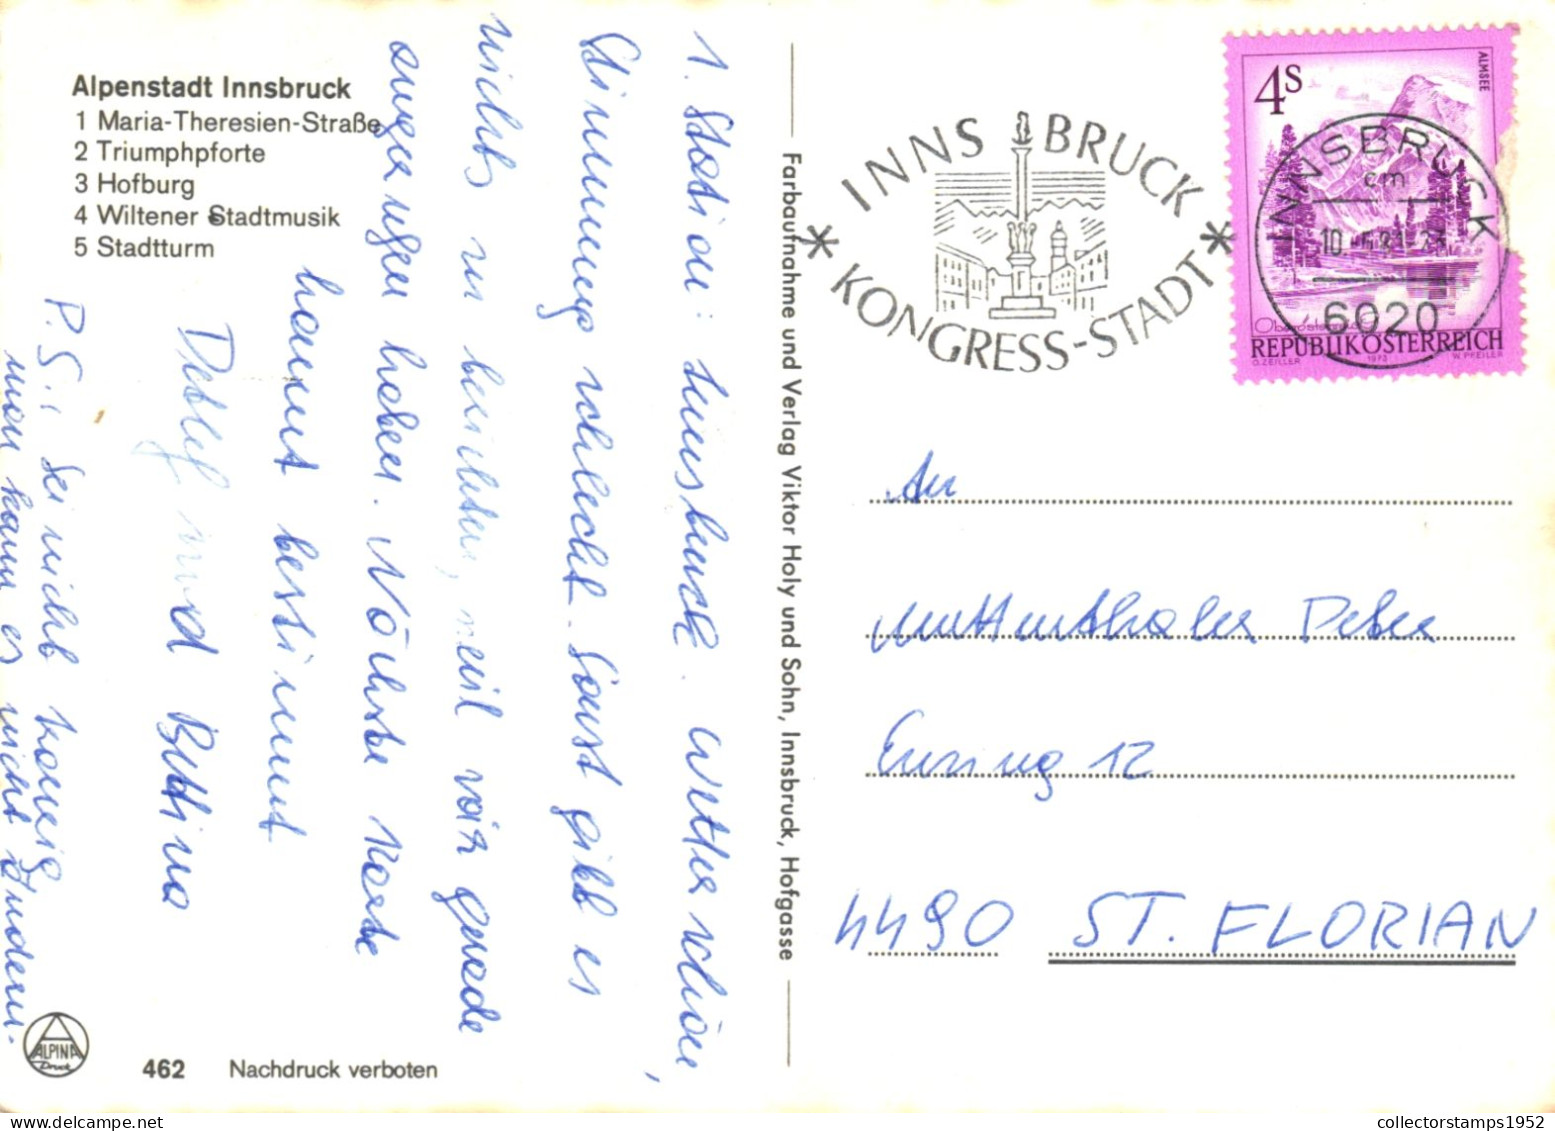 Alpenstadt Innsbruck
1 Maria-Theresien-Straße
2 Triumphpforte
3 Hofburg
4 Wiltener Stadtmusik
5 Stadtturm
1. Station: Innsbruck. Wetter schön,
Stimmung schlecht. Sonst gibt es
nichts zu berichten, weil wir gerade
angefangen haben. Nächste Karte
kommt bestimmt
Detlef und Bettina
P.S.: Sei nicht
man kann es nicht ändern.
ALPINA
Druck
462 Nachdruck verboten
Farbaufnahme und Verlag Viktor Holy und Sohn, Innsbruck, Hofgasse
INNSBRUCK
* KONGRESS-STADT *
4S
ALMSEE
INNSBRUCK
6020
REPUBLIK ÖSTERREICH
O. ZEILLER 1973 W. PFEILER
An
Muttenthaler Peter
Enzing 12
4490 ST. FLORIAN
collectorstamps1952